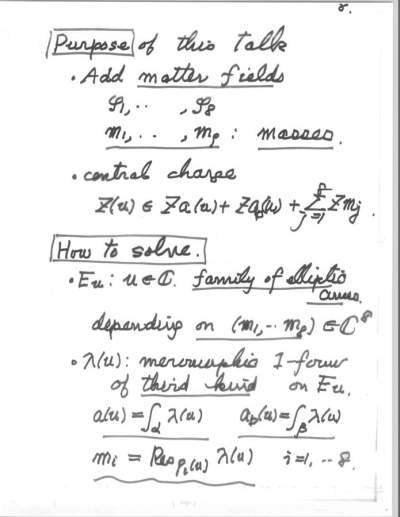 8.
Purpose of this talk
• Add matter fields
φ₁, ‥ , φ₈
m₁, ‥ , m₈ : masses.
• central charge
Z(u) ∈ ℤa(u) + ℤa_D(u) + ∑_{j=1}^{8} ℤm_j .
How to solve.
• E_u : u ∈ ℂ. family of elliptic
curves,
depending on (m₁, ‥ m₈) ∈ ℂ⁸
• λ(u) : meromorphic 1-form
of third kind on E_u.
a(u) = ∫_α λ(u) a_D(u) = ∫_β λ(u)
m_i = Res_{p_i(u)} λ(u) i=1, ‥ 8.